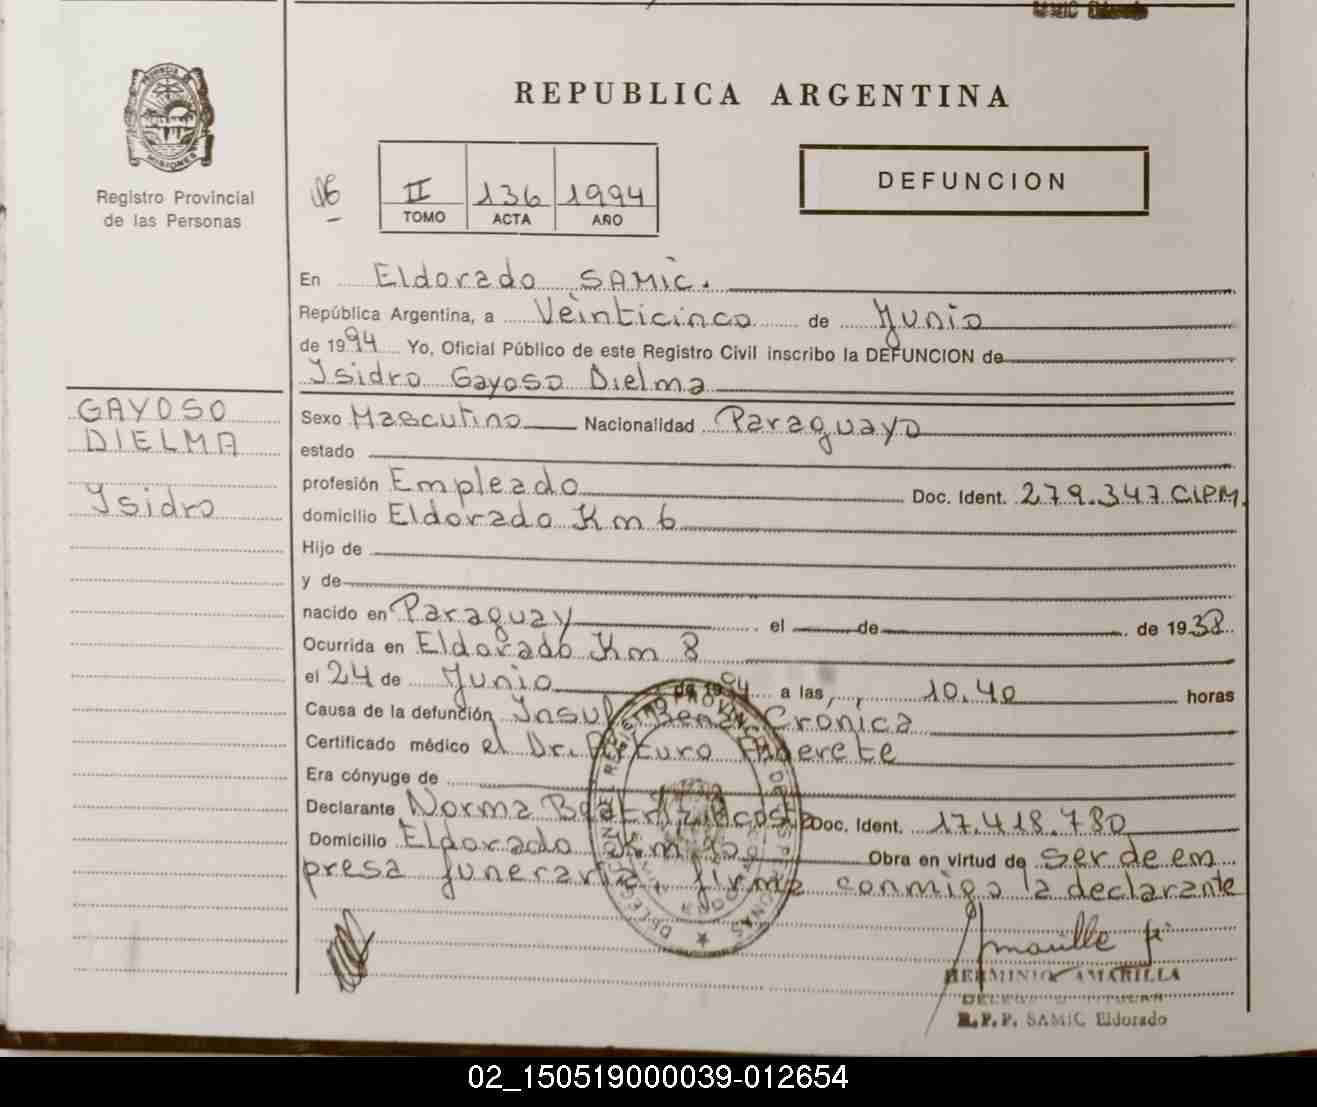 REPUBLICA ARGENTINA
PROVINCIA DE
MISIONES
Registro Provincial
de las Personas
II 136 1994
TOMO ACTA AÑO
DEFUNCION
En Eldorado SAMIC.
República Argentina, a Veinticinco de Junio
de 1994 Yo, Oficial Público de este Registro Civil inscribo la DEFUNCION de
Isidro Gayoso Dielma
GAYOSO
DIELMA
Isidro
Sexo Masculino Nacionalidad Paraguayo
estado
profesión Empleado Doc. Ident. 279.347 C.I.P.M.
domicilio Eldorado Km 6
Hijo de
y de
nacido en Paraguay el de de 1938
Ocurrida en Eldorado Km 8
el 24 de Junio de 1994 a las 10.40 horas
Causa de la defunción Insuf Renal Cronica
Certificado médico el Dr. Arturo
Era cónyuge de
Declarante Norma Beatriz Acosta Doc. Ident. 17.418.780
Domicilio Eldorado Km Obra en virtud de ser de em
presa funeraria firma conmigo la declarante
HERMINIO AMARILLA
R.P.P. SAMIC Eldorado
02_150519000039-012654